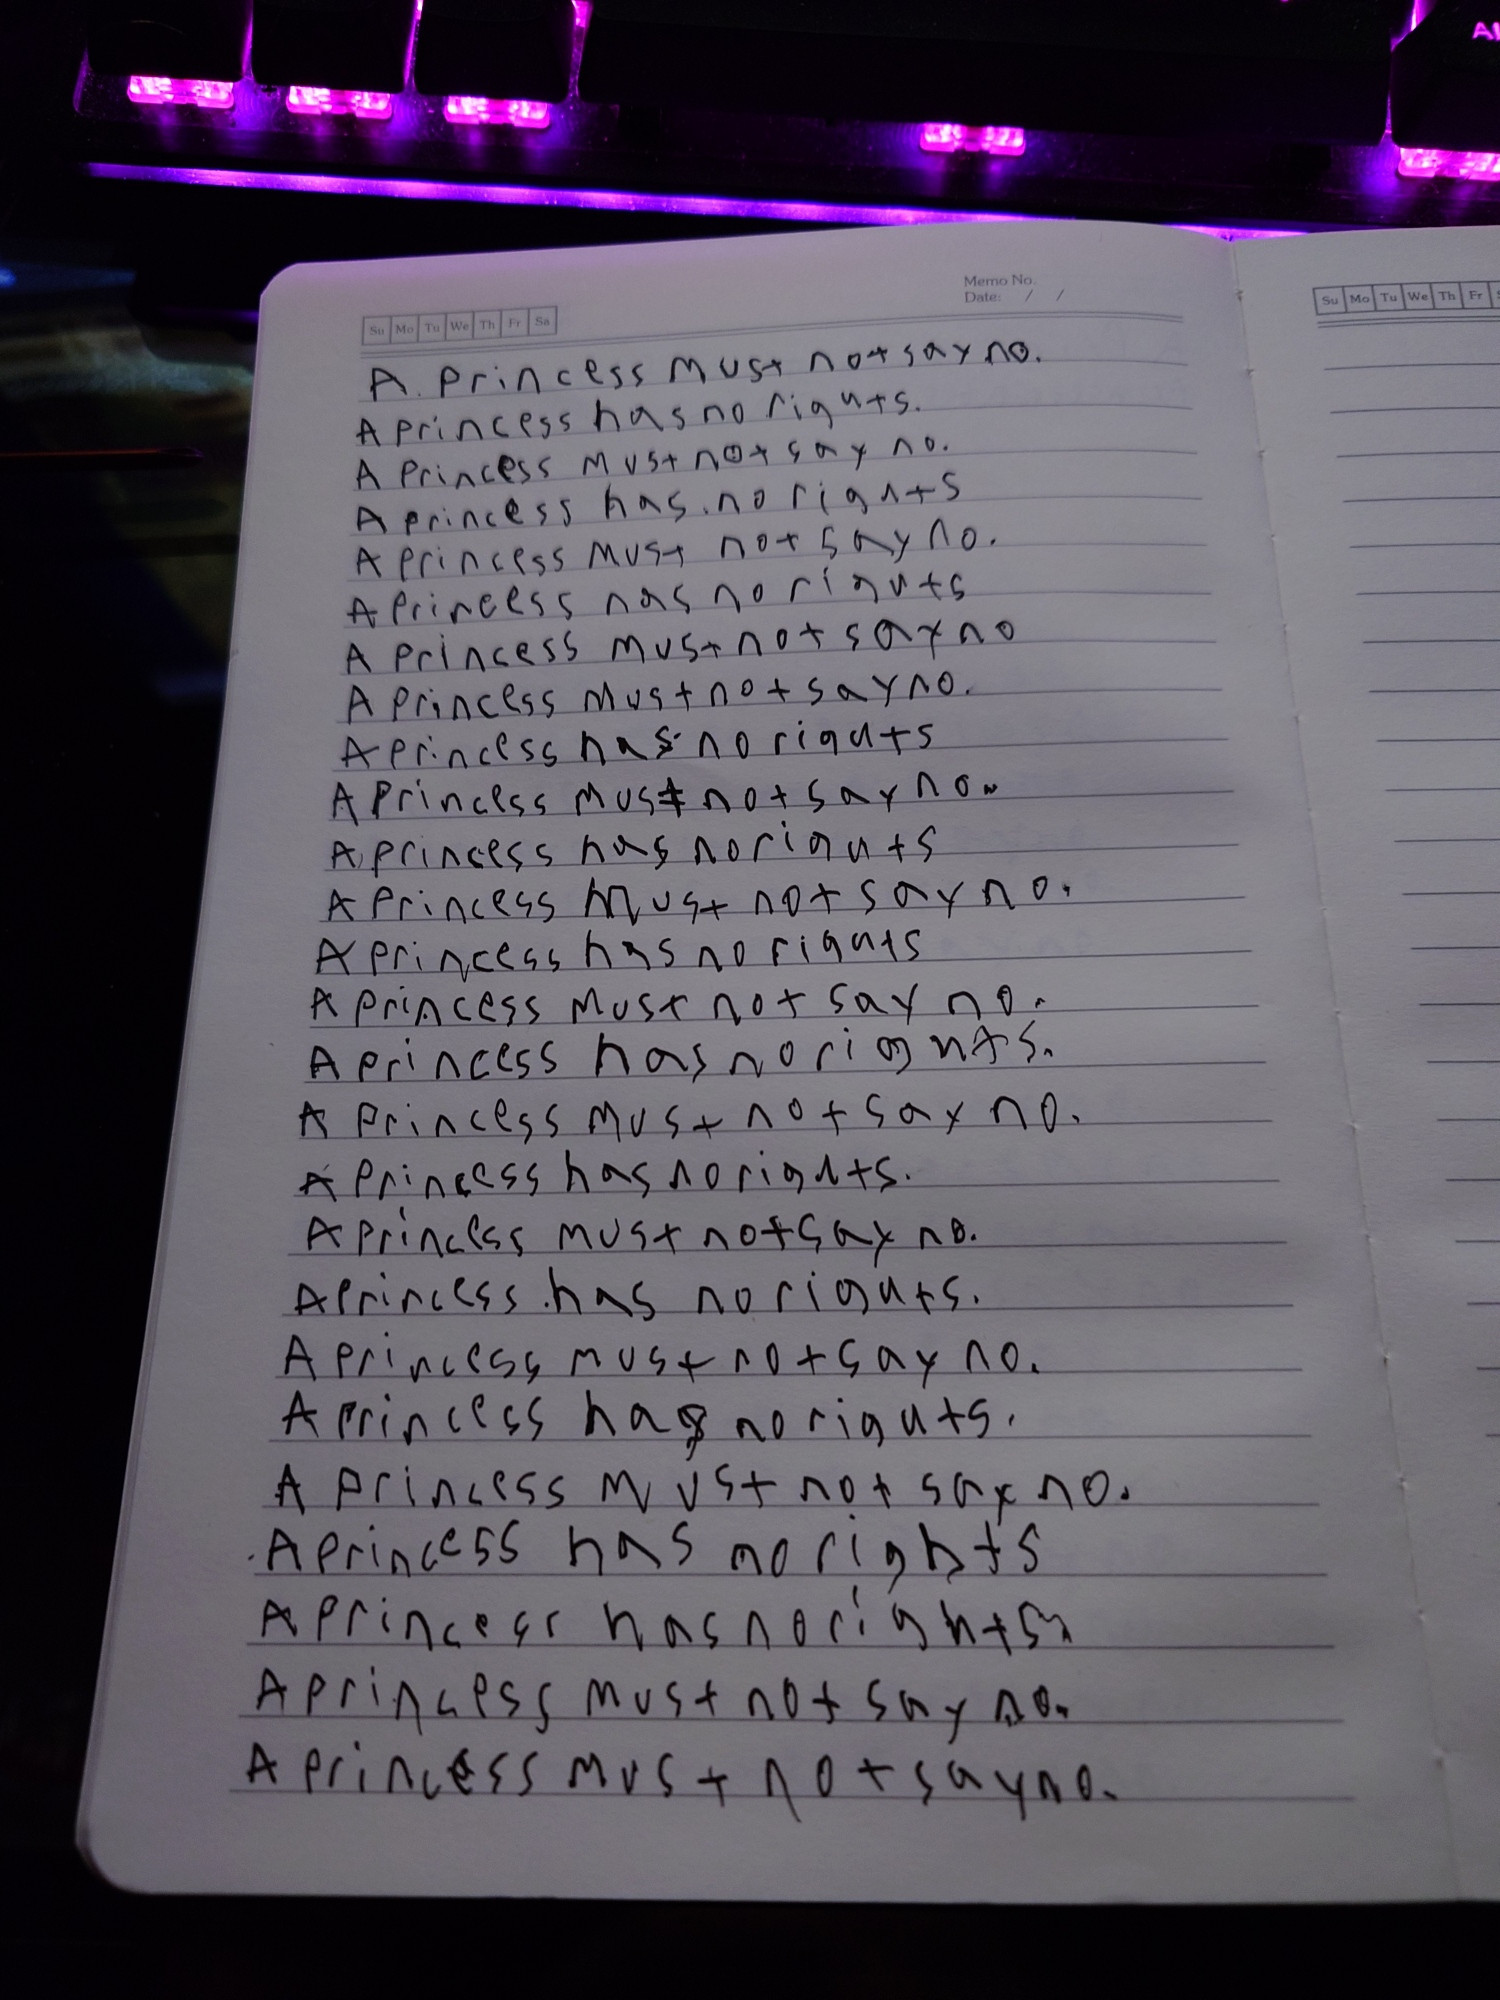 Al
Memo No.
Date: / /
Su Mo Tu We Th Fr Sa
Su Mo Tu We Th Fr S
A. Princess must not say no.
A princess has no riguts.
A Princess must not say no.
A princess has no rignts
A Princess must not say no.
A Princess has no riguts
A Princess must not say no
A Princess must not say no.
A Princess has no riguts
A Princess must not say no.
A princess has no riguts
A Princess must not say no.
A princess has no riguts
A Princess must not say no.
A princess has no rignts.
A Princess must not say no.
A Princess has no rignts.
A Princess must not say no.
A Princess has no riguts.
A Princess must not say no.
A Princess has no riguts.
A Princess must not say no.
A Princess has no rights
A Princess has no rights
A Princess must not say no.
A Princess must not say no.